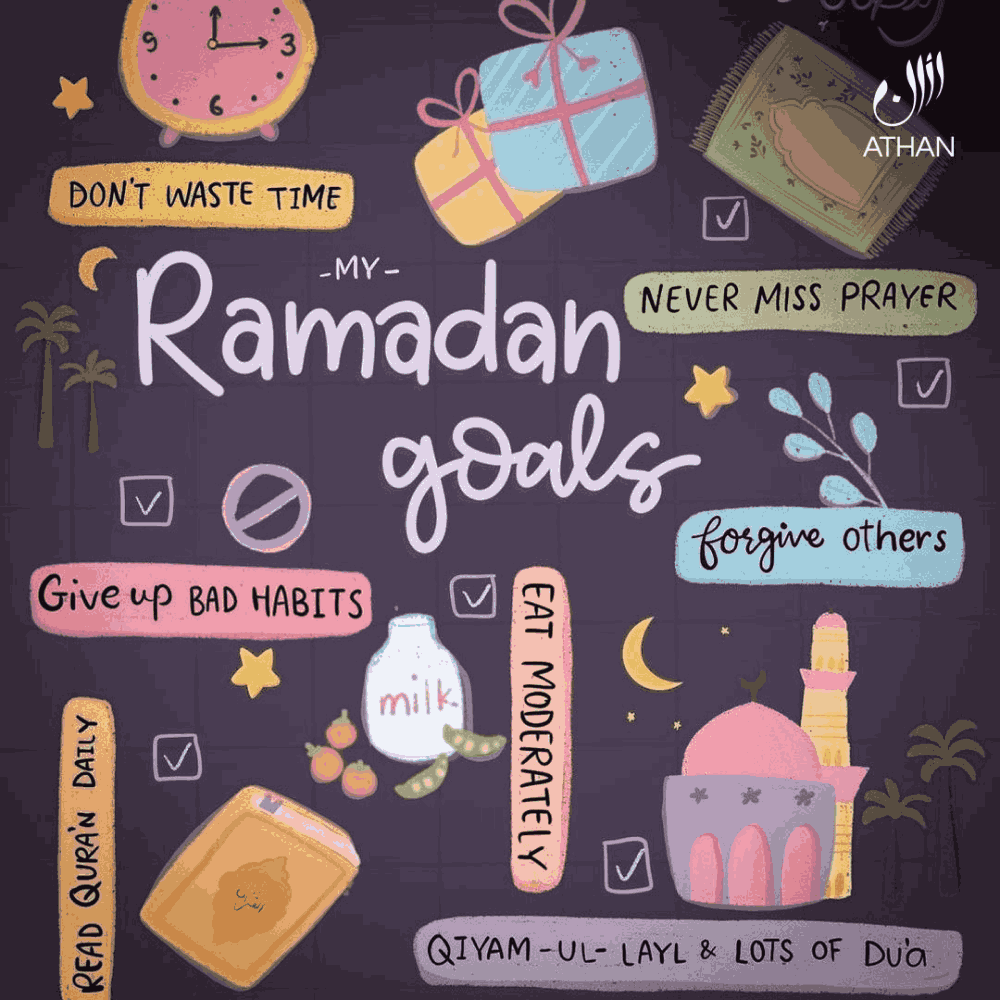 9 3
6
ATHAN
DON'T WASTE TIME
-MY-
Ramadan
goals
NEVER MISS PRAYER
forgive others
Give up BAD HABITS
milk
EAT MODERATELY
READ QURA'N DAILY
QIYAM-UL-LAYL & LOTS OF DU'a